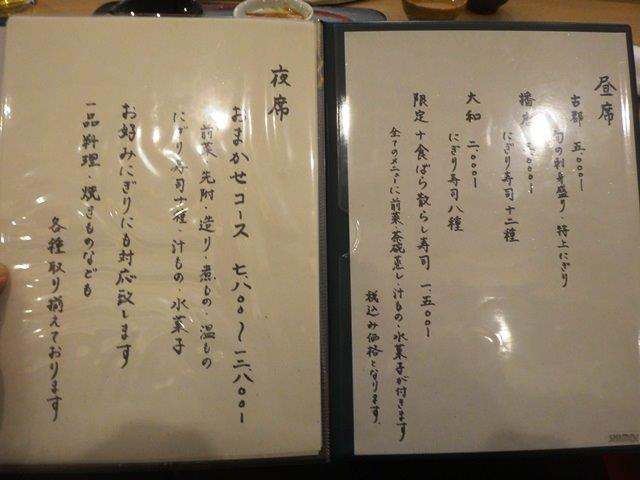 昼席
古都 五.000ー
旬の刺身盛り・特上にぎり
播 三.000ー
にぎり寿司十二種
大和 二.000ー
にぎり寿司八種
限定十食ばら散らし寿司 一.五00ー
全てのメニューに前菜・茶碗蒸し・汁もの・水菓子が付きます
税込み価格となります.
夜席
おまかせコース 七.八00〜一三.八00ー
前菜・先附・造り・煮もの・温もの
にぎり寿司十種・汁もの・水菓子
お好みにぎりにも対応致します
一品料理・焼きものなども
各種取り揃えております